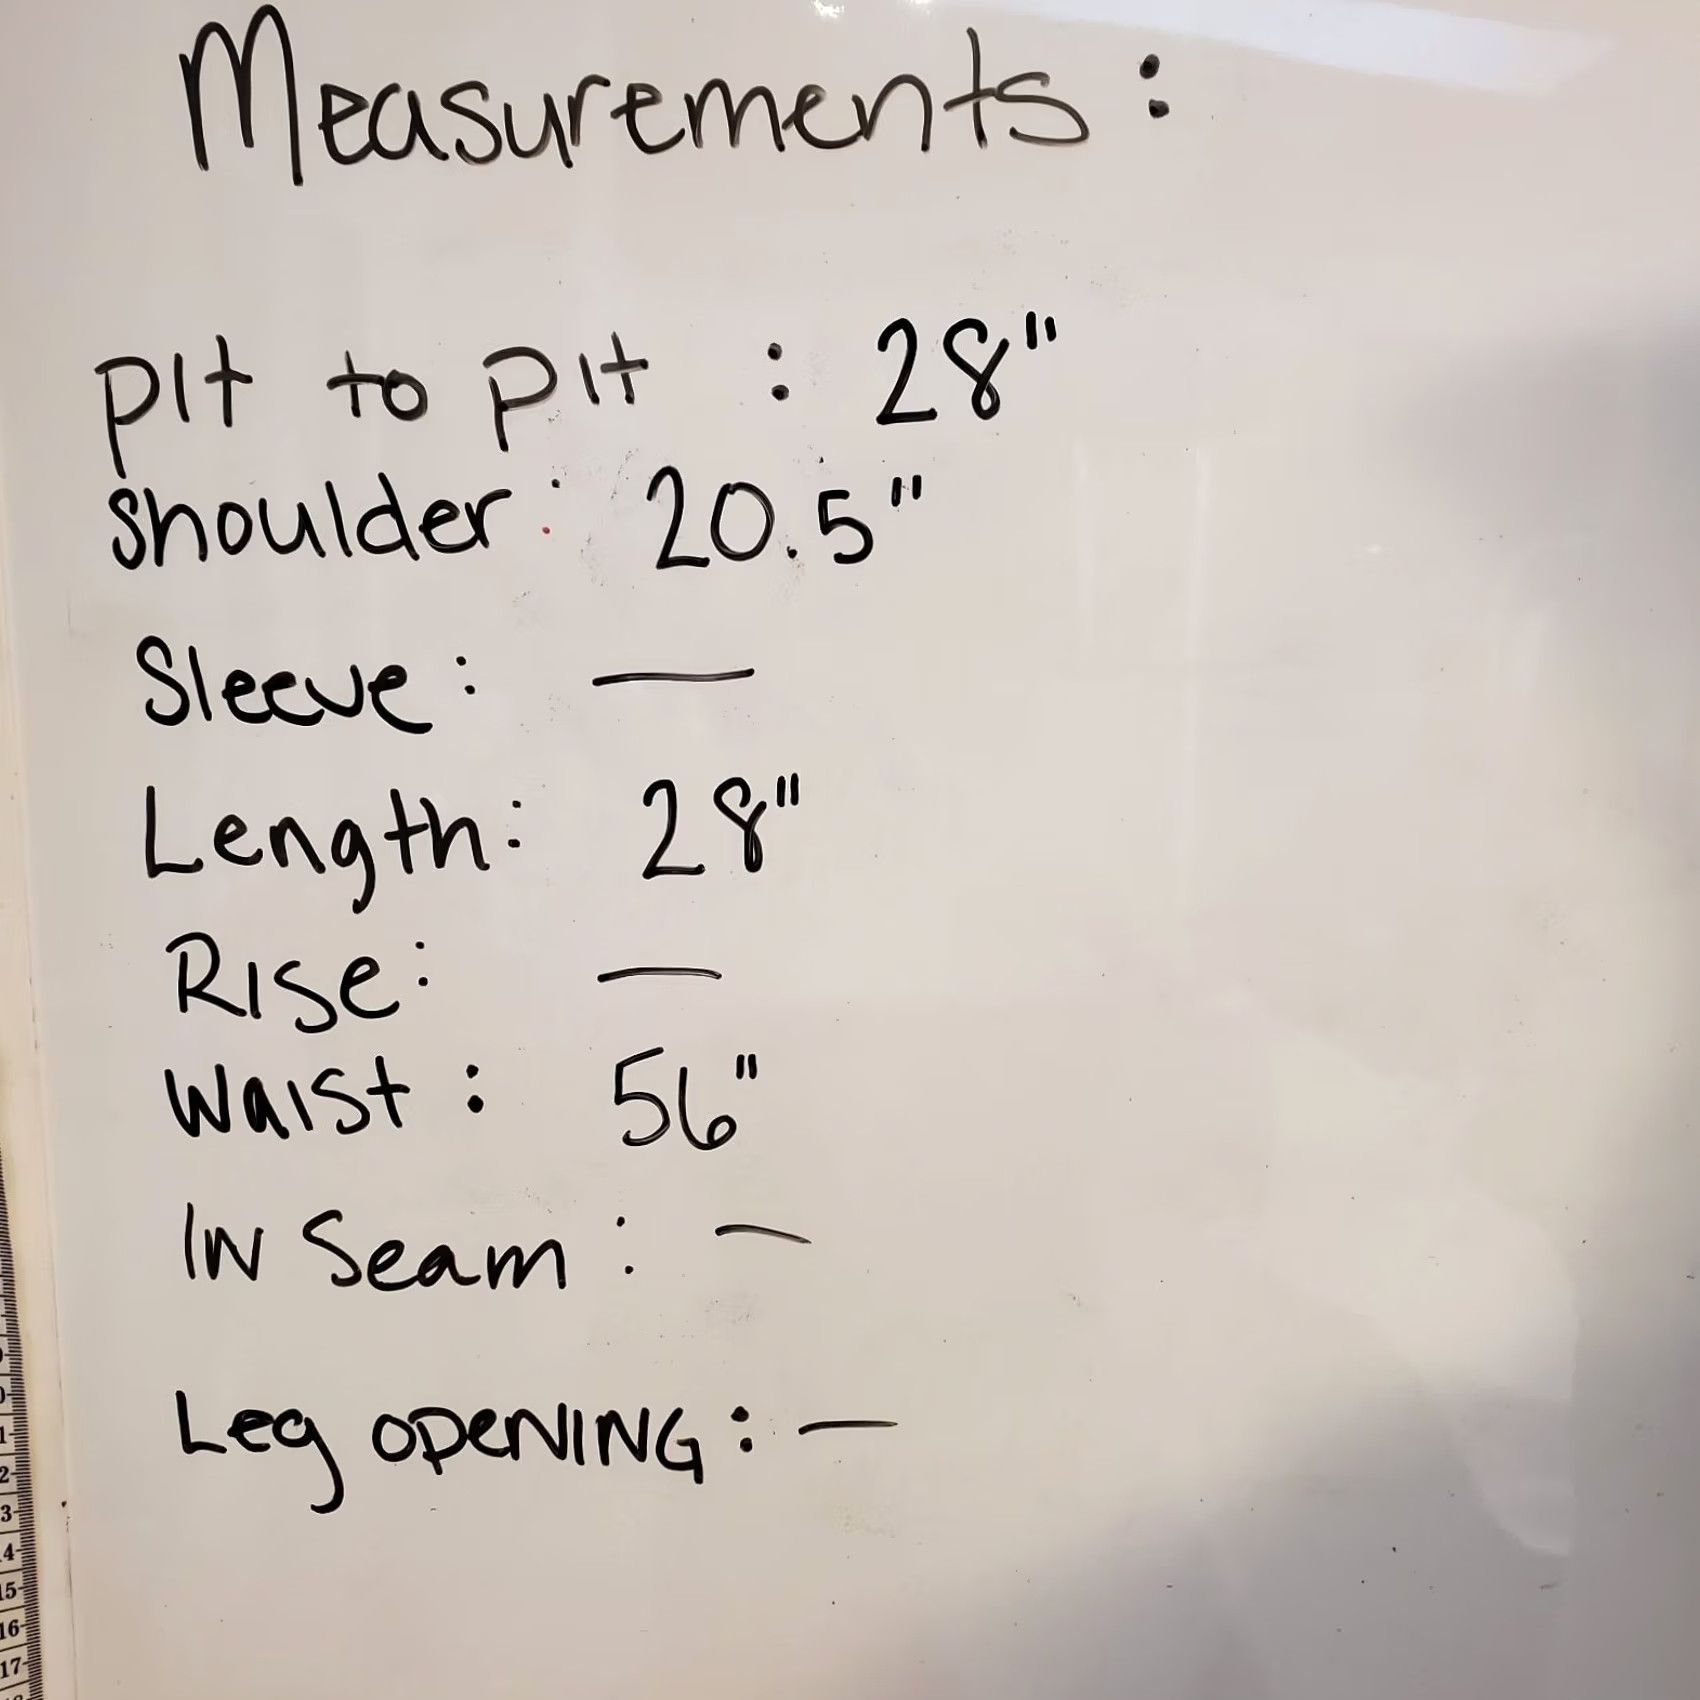 Measurements:
pit to pit : 28"
shoulder: 20.5"
Sleeve: —
Length: 28"
Rise: —
Waist: 56"
IN Seam: —
Leg OPeNING: —
1
2
3
14
15
16
17